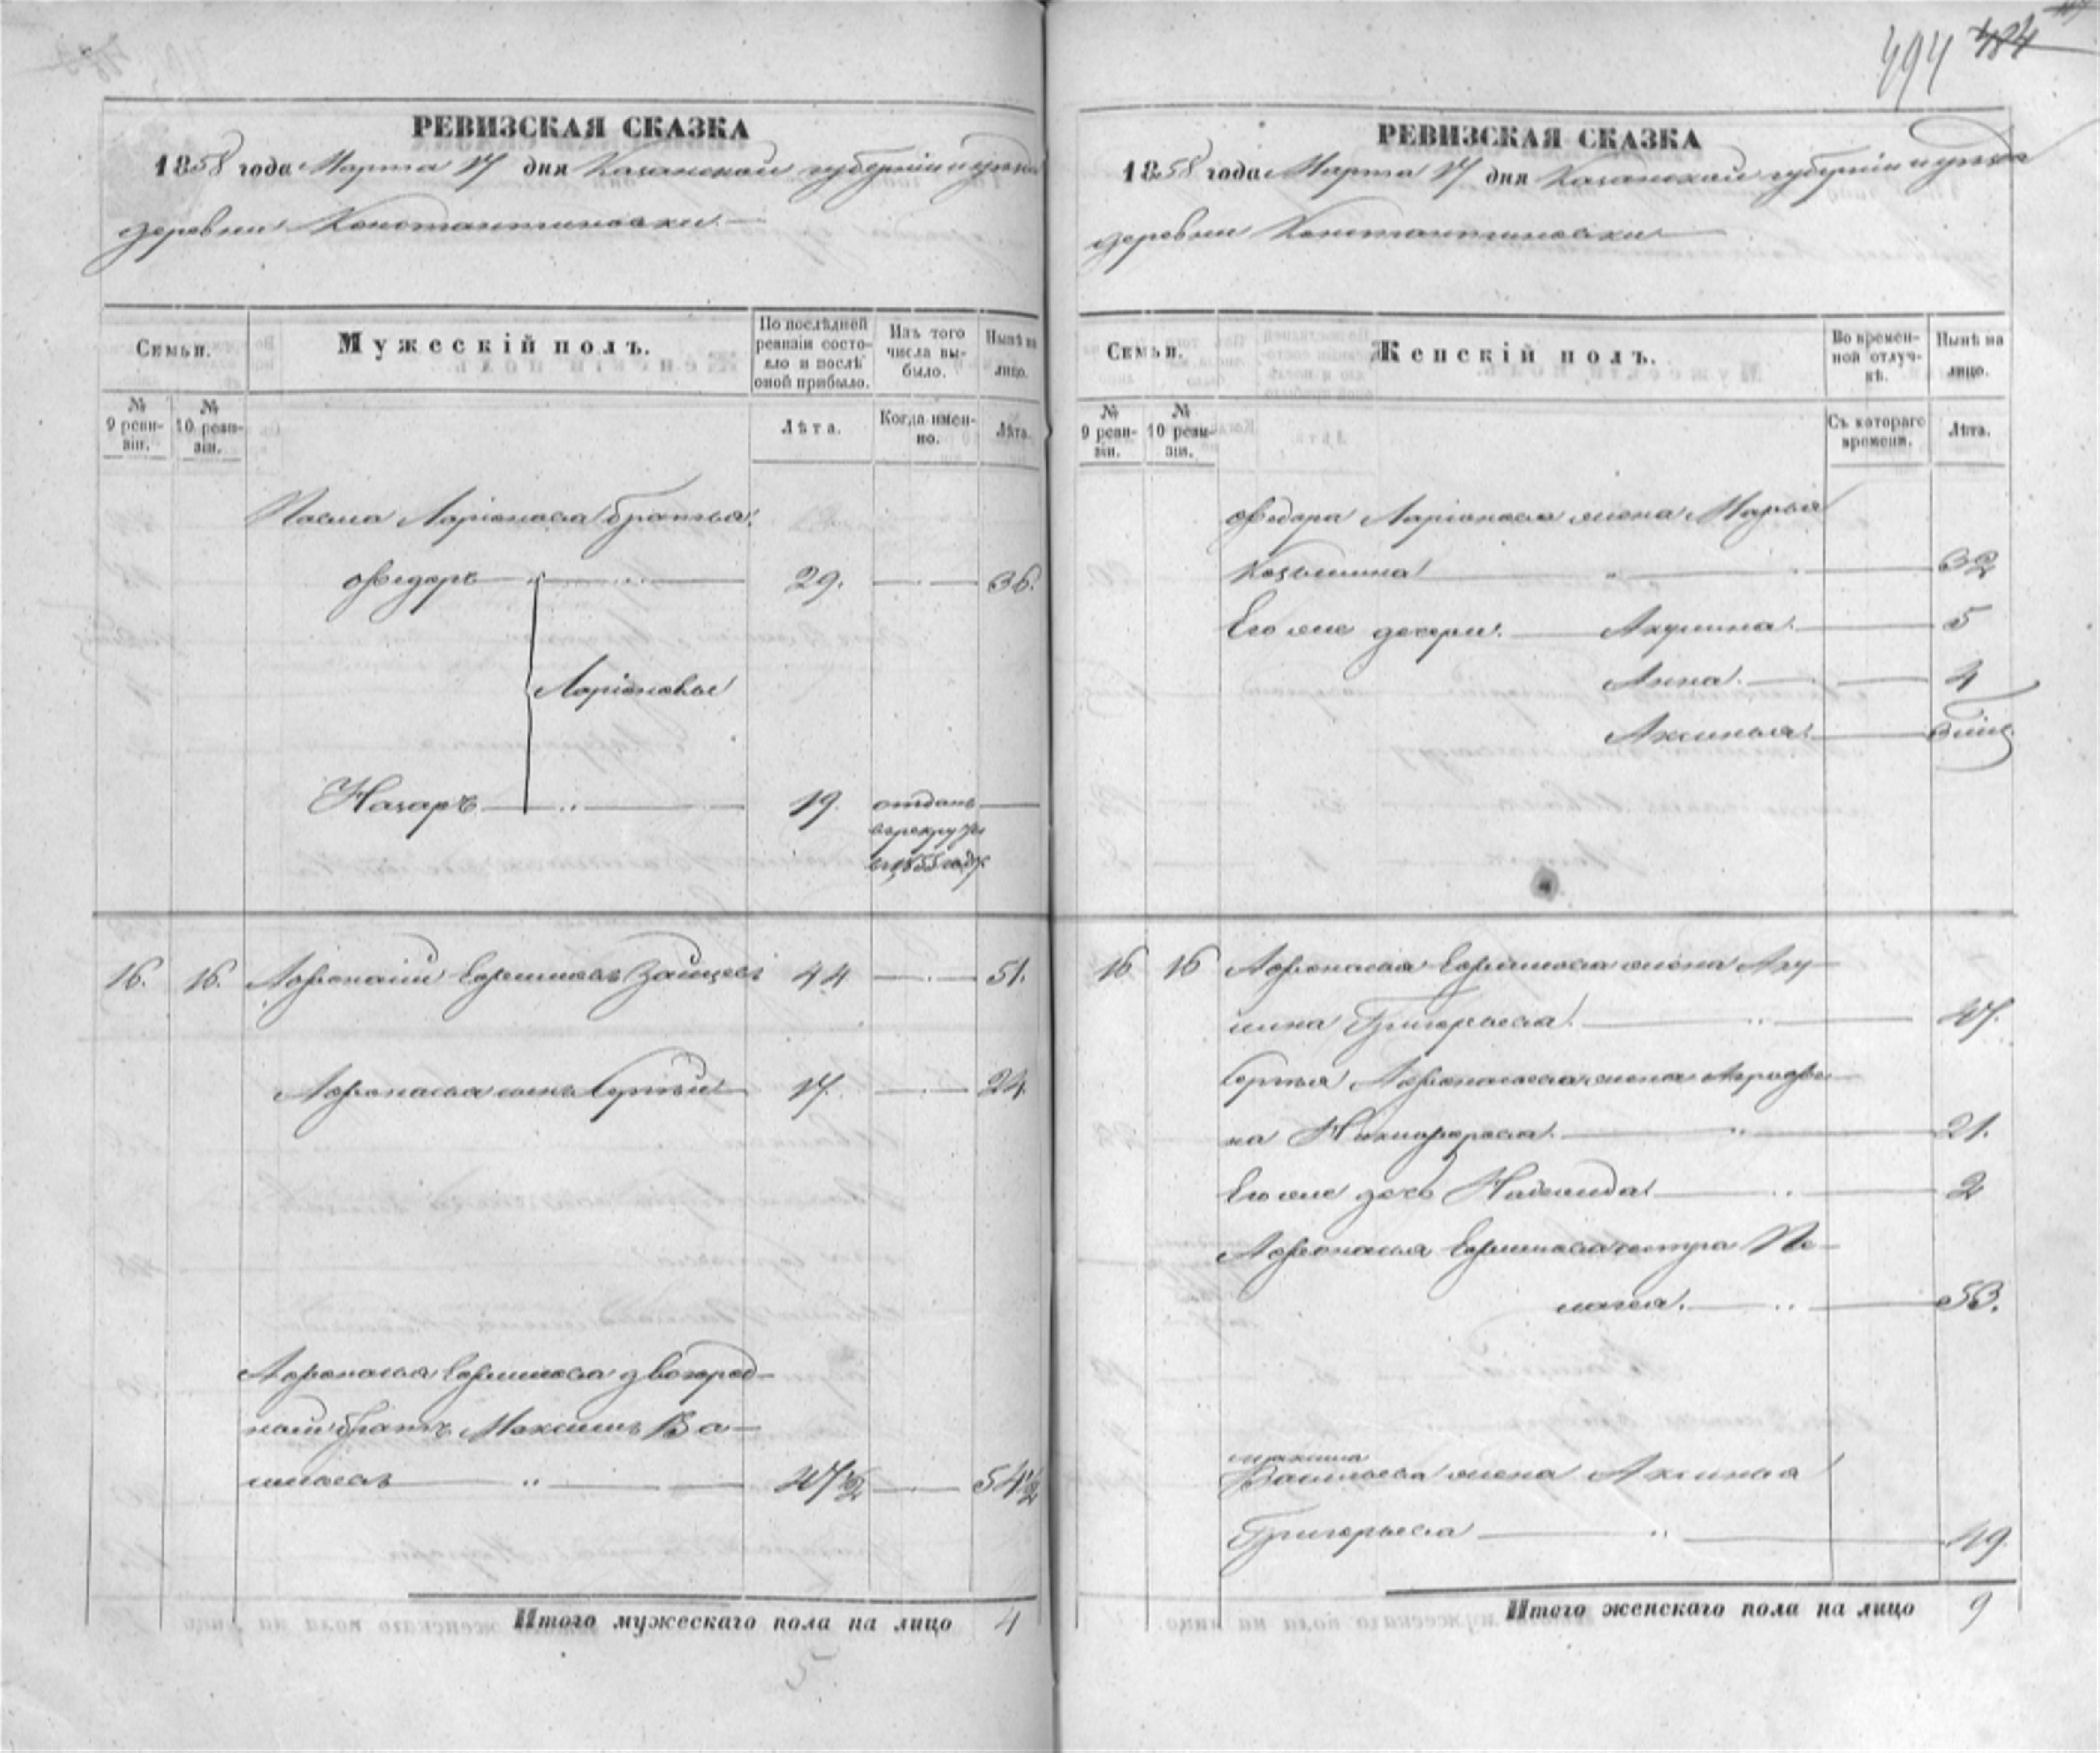 РЕВИЗСКАЯ СКАЗКА
1858 года Марта 17 дня Казанской губерніи и уезда
деревни Константиновки
Семьи.
Мужескій полъ.
По послѣдней ревизіи состояло и послѣ оной прибыло.
Изъ того числа выбыло.
Нынѣ на лицо.
№ 9 ревизіи.
№ 10 ревизіи.
Лѣта.
Когда именно.
Лѣта.
Ларіонова братья
Федоръ 29. 36.
Ларіоновы
Назаръ 19. отданъ
въ рекруты
въ 1855 году
16. 16. Афонасий Ефимовъ Зайцевъ 44 51.
Афонасья сынъ Сергей 17. 24.
Афонасья Ефимова двоюрод-
ной братъ Максимъ Ва-
сильевъ 47½ 54½
Итого мужескаго пола на лицо 4
5
494 484
РЕВИЗСКАЯ СКАЗКА
1858 года Марта 17 дня Казанской губерніи и уезда
деревни Константиновки
Семьи.
Женскій полъ.
Во временной отлучкѣ.
Нынѣ на лицо.
№ 9 ревизіи.
№ 10 ревизіи.
Съ котораго времени.
Лѣта.
Федора Ларіонова жена Марья
Козьмина 32
Его же дочери Акулина 5
Анна 4
Аксинья
16 16 Афонасья Ефимова жена Аку-
лина Григорьева 47.
Сергея Афонасьева жена
на Никифорова 21.
Его же дочь Надежда 2
Афонасья Ефимова сестра Пе-
лагея 53.
Максима
Васильева жена Аксинья
Григорьева 49.
Итого женскаго пола на лицо 9